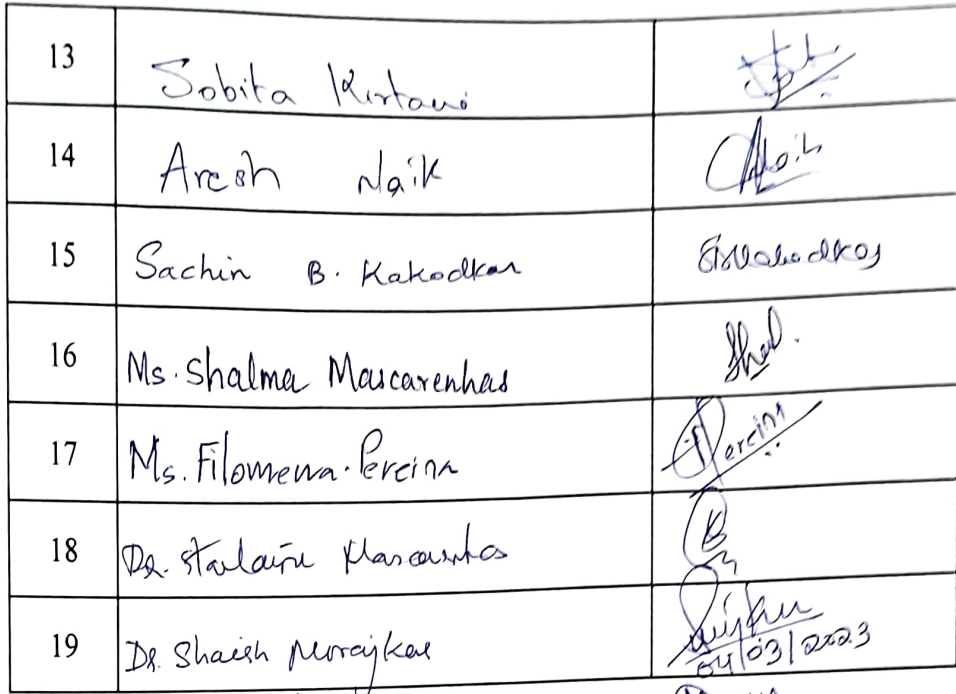 13 Sobita Kirtani
14 Aresh Naik Naik
15 Sachin B. Kakodkar SBKakodkar
16 Ms. Shalma Mascarenhas Shal.
17 Ms. Filomena Pereira Pereira
18 Dr. Mascarenhas
19 Dr. Shaish Morajkar
04/03/2023